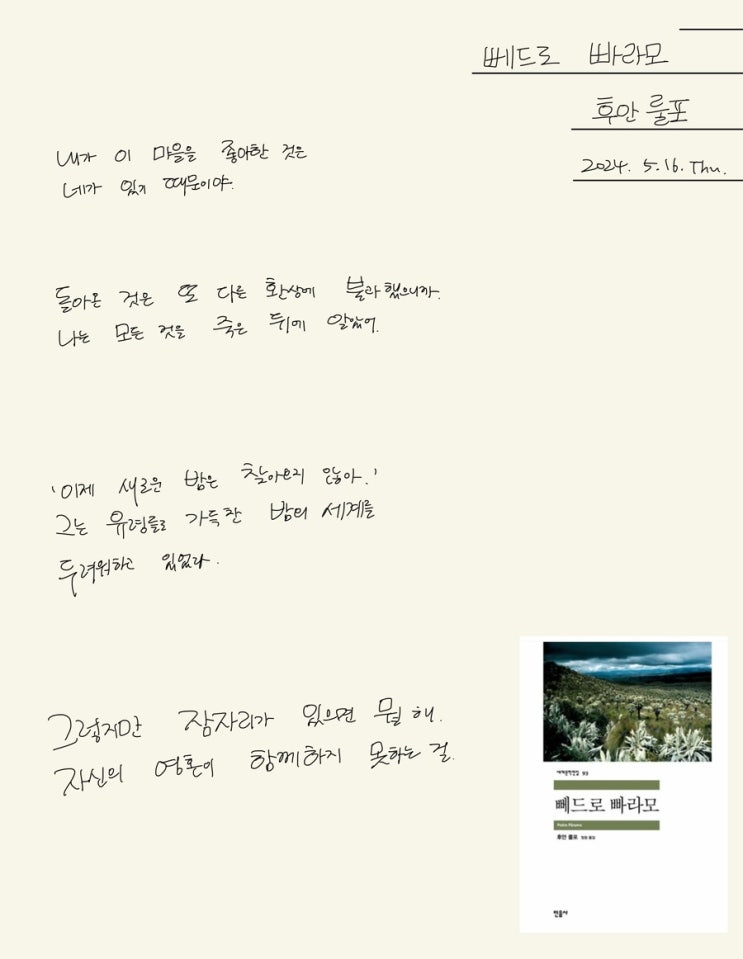 뻬드로 빠라모
후안 룰포
2024. 5. 16. Thu.
내가 이 마을을 좋아한 것은
네가 있기 때문이야.
돌아온 것은 또 다른 환상에 불과했으니까.
나는 모든 것을 죽은 뒤에 알았어.
'이제 새로운 밤은 찾아오지 않아.'
그는 유령들로 가득찬 밤의 세계를
두려워하고 있었다.
그렇지만 잠자리가 있으면 뭘 해.
자신의 영혼이 함께하지 못하는 걸.
세계문학전집 93
뻬드로 빠라모
Pedro Páramo
후안 룰포
민음사